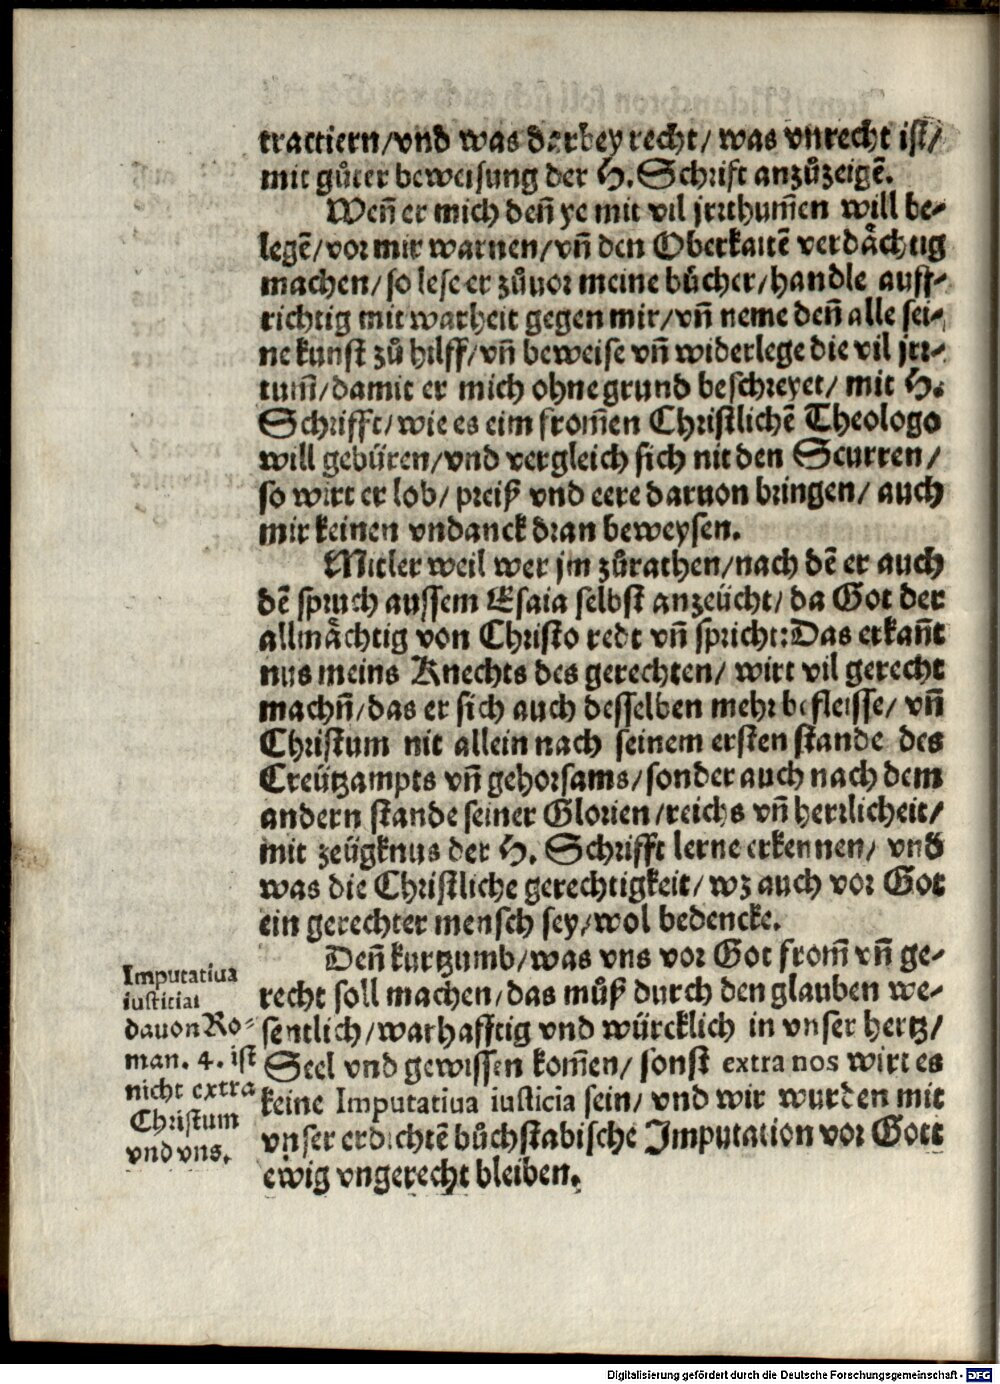 tractiern/vnd was darbey recht/ was vnrecht ist/
mit gůter beweisung der H. Schrift anzůzeigẽ.
Weñ er mich deñ ye mit vil jrrthum̃en will be-
legẽ/vor mir warnen/vñ den Oberkaitẽ verdåchtig
machen/so lese er zůuor meine bůcher/handle auff-
richtig mit warheit gegen mir/vñ neme deñ alle sei-
ne kunst zů hilff/vñ beweise vñ widerlege die vil jrr-
tum̃/damit er mich ohne grund beschreyet/ mit H.
Schrifft/wie es eim from̃en Christlichẽ Theologo
will gebüren/vnd vergleich sich nit den Scurren/
so wirt er lob/ preiß vnd eere daruon bringen/ auch
mir keinen vndanck dran beweysen.
Mitler weil wer jm zůrathen/nach dẽ er auch
dẽ spruch aussem Esaia selbst anzeücht/da Got der
allmåchtig von Christo redt vñ spricht:Das erkañt
nus meins Knechts des gerechten/ wirt vil gerecht
machñ/das er sich auch desselben mehr befleisse/ vñ
Christum nit allein nach seinem ersten stande des
Creützampts vñ gehorsams/sonder auch nach dem
andern stande seiner Glorien/reichs vñ herrlicheit/
mit zeügknus der H. Schrifft lerne erkennen/ vnd
was die Christliche gerechtigkeit/wz auch vor Got
ein gerechter mensch sey/wol bedencke.
Deñ kurtzumb/was vns vor Got from̃ vñ ge-
recht soll machen/das můß durch den glauben we-
sentlich/warhafftig vnd würcklich in vnser hertz/
Seel vnd gewissen kom̃en/ sonst extra nos wirt es
keine Imputatiua iusticia sein/ vnd wir wurden mit
vnser erdichtẽ bůchstabische Imputation vor Gott
ewig vngerecht bleiben.
Imputatiua
iusticia
dauon Ro-
man. 4. ist
nicht extra
Christum
vnd vns.
Digitalisierung gefördert durch die Deutsche Forschungsgemeinschaft - DFG